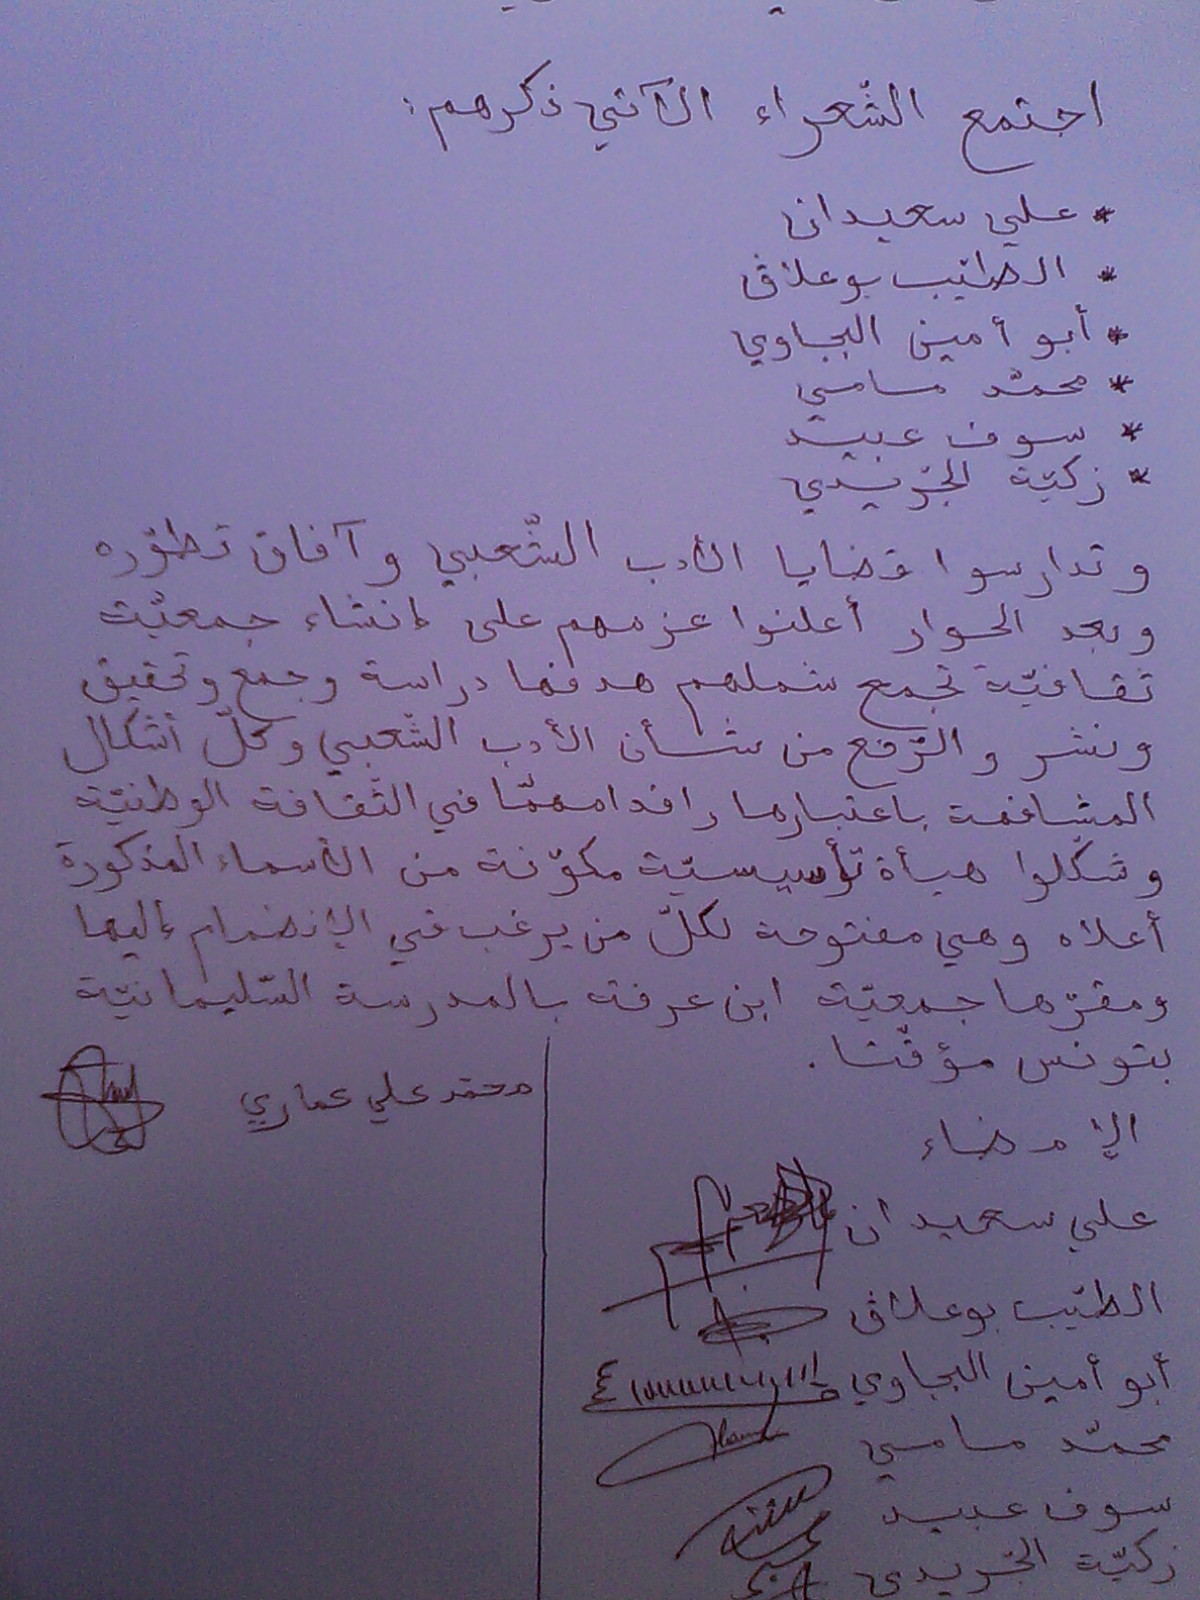 اجتمع الشّعراء الآتي ذكرهم:
* علي سعيدان
* الطيّب بوعلاڨ
* أبو أمين البجاوي
* محمّد مامي
* سوف عبيد
* زكيّة الجّريدي
وتدارسوا قضايا الأدب الشّعبي وآفاق تطوّره
وبعد الحوار أعلنوا عزمهم على إنشاء جمعيّة
ثقافيّة تجمع شملهم هدفها دراسة وجمع وتحقيق
ونشر والرّفع من شأن الأدب الشّعبي وكلّ أشكال
المشافهة باعتبارها رافدا مهمّا في الثّقافة الوطنيّة
وشكّلوا هيأة تأسيسيّة مكوّنة من الأسماء المذكورة
أعلاه وهي مفتوحة لكلّ من يرغب في الإنضمام إليها
ومقرّها جمعيّة ابن عرفة بالمدرسة السّليمانيّة
بتونس مؤقّتا.
الإمضاء
علي سعيدان
الطيّب بوعلاڨ
أبو أمين البجاوي
محمّد مامي
سوف عبيد
زكيّة الجّريدي
محمد علي عماري